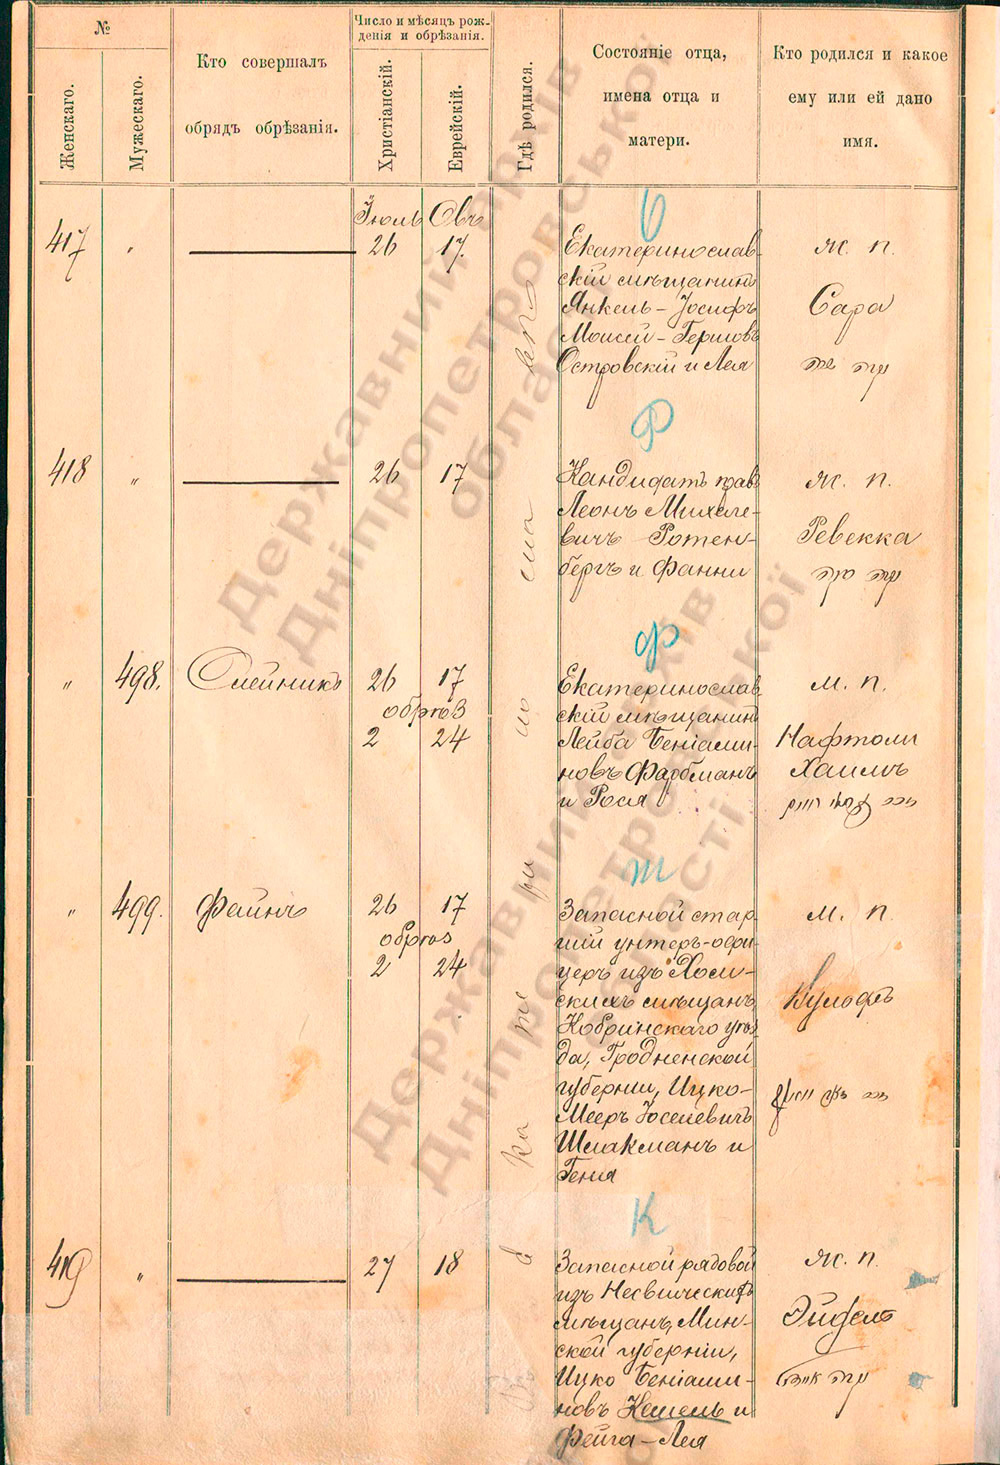 №
Женскаго.
Мужескаго.
Кто совершалъ
обрядъ обрѣзанія.
Число и мѣсяцъ рож-
денія и обрѣзанія.
Христіанскій.
Еврейскій.
Гдѣ родился.
Состояніе отца,
имена отца и
матери.
Кто родился и какое
ему или ей дано
имя.
Въ Екатеринославѣ
Іюль Овъ
417 " 26 17.
Екатеринослав-
скій мѣщанинъ
Янкель-Іосифъ
Мошей-Гершовъ
Островскій и Лея
ж. п.
Сара
418 " 26 17
Р
Кандидатъ правъ
Леонъ Михеле-
вичъ Ротен-
бергъ и Фанни
ж. п.
Ревекка
" 498. Олейникъ 26 17
обрѣз
2 24
Ф
Екатеринослав-
скій мѣщанинъ
Лейба Беніами-
новъ Фарбманъ
и Рося
м. п.
Нафтоли
Хаимъ
" 499. Файнъ 26 17
обрѣз
2 24
Запасной стар-
шій унтеръ-офи-
церъ изъ
скихъ мѣщанъ,
Кобринскаго уѣз-
да, Гродненской
губерніи, Ицко-
Мееръ Іоселевичъ
Шмакманъ и
Геня
м. п.
Вульфъ
419 " 27 18
К
Запасной рядовой
изъ Несвижскихъ
мѣщанъ, Мин-
ской губерніи,
Ицко Беніами-
новъ Кешель и
Фейга-Лея
ж. п.
Эйдель
Державний архів
Дніпропетровської
області
Державний архів
Дніпропетровської
області